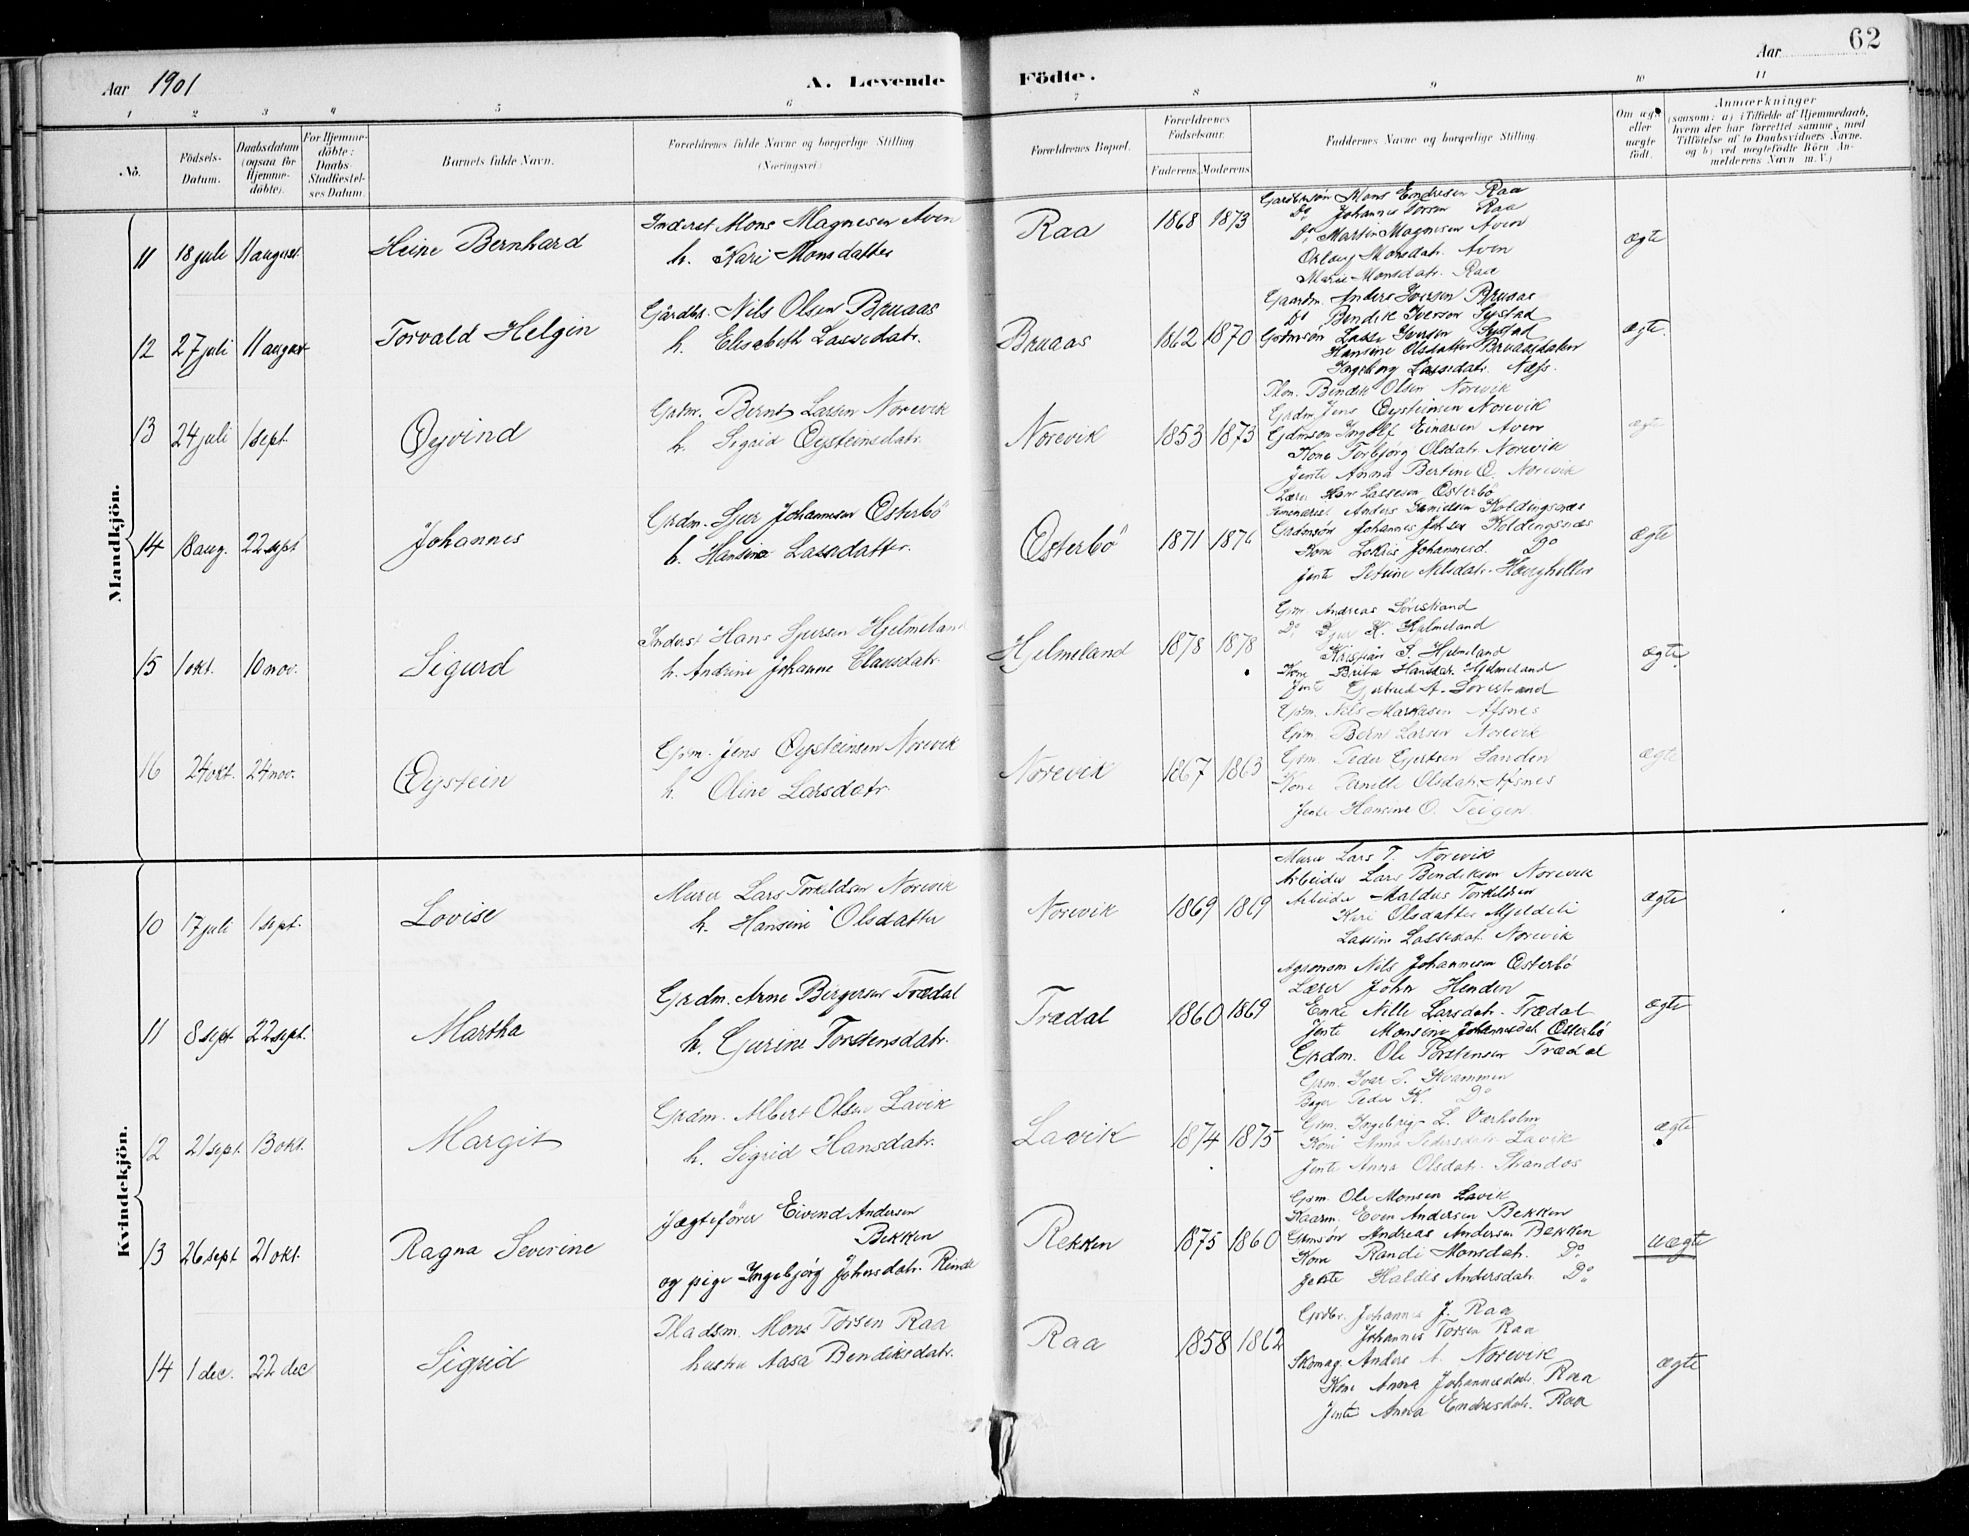 62
Aar 1901 A. Levende Födte. Aar
1 2 3 4 5 6 7 8 9 10 11
No.
Födsels-Datum.
Daabsdatum (ogsaa for Hjemme-döbte).
For Hjemme-döbte: Daabs-Stadfæstel-ses Datum.
Barnets fulde Navn.
Forældrenes fulde Navne og borgerlige Stilling (Næringsvei.)
Forældrenes Bopæl.
Forældrenes Födselsaar.
Faderens. Moderens.
Faddernes Navne og borgerlige Stilling.
Om ægte eller uægte født.
Anmærkninger
(saasom: a) i Tilfælde af Hjemmedaab,
hvem der har forrettet samme, med
Tilføielse af to Daabsvidners Navne.
og b) ved uegtefödte Börn An-
melderens Navn m. V.)
Mandkjön.
11 18 juli 11 august Heine Bernhard
Inderst Mons Magnesen Aven
h. Kari Monsdatter
Raa 1868 1873
Gaardmsøn Mons Endresen Raa
Do Johannes Torsen Raa
Do Martin Magnesen Aven
Monsdatr. Aven
Marie Monsdatr. Raa
ægte
12 27 juli 11 august Torvald Helgin
Gårdbr. Nils Olsen Bruaas
h. Elisabeth Lassedatr.
Bruaas 1862 1870
Gaardm. Anders Iversen Bruaas
Do Bendik Iverson Systad
Grdmsøn Lasse Iversen Systad
Hansine Olsdatter Bruaasdalen
Ingeborg Lassedatr. Næss.
ægte.
13 24 juli 1 sept. Øyvind
Grdm. Bernt Larsen Norevik
h. Sigrid Øysteinsdatr.
Norevik 1853 1873
Olsen Norevik
Grdm Jens Øysteinsen Norevik
Gdmson Ingolf Einarsen Aven
Kone Torbjørg Olsdatr. Norevik
Jente Anna Bertine O. Norevik
ægte
14 18 aug. 22 sept Johannes
Grdm. Sjur Johannesen Østerbö
h. Hansine Lassedatter.
Østerbö 1871 1876
Lærer Hans Lassesen Østerbö
Seminarist Anders Danielsen Koldingsnæs
Grdmsøn Johannes Koldingsnæs
Kone Johannesd. Do
Jente Petrine Nilsdatr. Haughellen
ægte
15 1 okt. 10 nov. Sigurd
Inderst Hans Sjursen Hjelmeland
h. Andrine Johanne Clausdatr.
Hjelmeland 1878 1878
Grm. Andreas Sörestrand
Do Sjur K. Hjelmeland
Kristian S. Hjelmeland
Kone Brita Hansdtr. Hjelmeland
Jente Gjertrud A. Sörestrand
ægte
16 24 okt. 24 nov. Øystein
Grm. Jens Øysteinsen Norevik
h. Oline Larsdatr.
Norevik 1867 1863
Grm. Nils Markusen Afsnes
Grm. Bernt Larsen Norevik
Grm. Peder Gjertsen Sanden
Kone Pernille Olsdatr. Afsnes
Jente Hansine O. Teigen
ægte
Kvindekjön.
10 17 juli 1 sept. Lovise
Murer Lars Torkildsen Norevik
h. Hansine Olsdatter
Norevik 1869 1869
Murer Lars T. Norevik
Arbeider Lars Bendiksen Norevik
Arbeider Maldus Torkildsen
Kari Olsdatter Mjeldeli
Lassine Lassedat. Norevik
ægte
11 8 sept 22 sept. Martha
Grdm. Arne Birgersen Trædal
h. Gurine Torstensdatr.
Trædal 1860 1869
Agronom Nils Johannesen Østerbö
Lærer John Henden
Enke Nille Larsdatr. Trædal
Jente Monsine Johannesdat Østerbö
Grdm. Ole Torstensen Trædal
ægte
12 21 sept. 13 okt. Margit
Grdm. Albert Olsen Lavik
h. Sigrid Hansdatr.
Lavik 1874 1875
Grm. Ivar P. Kvammen
Peder K. Do
Grm. Ingebrigt L. Værholm
Kone Anna Pedersdatr. Lavik
Jente Anna Olsdatr. Strandos
ægte
13 26 sept 21 okt. Ragna Severine
Jægtefører Eivend Andersen
Bekken
og pige Ingebjörg Johansdatr. Rende
Rekken 1875 1860
Grm. Ole Monsen Lavik
Kaarm. Even Andersen Bekken
Grmsøn Andreas Andersen Bekken
Kone Randi Monsdatr. Do
Jente Haldis Andersdatr. Do
uægte
14 1 dec. 22 dec Sigrid
Pladsm. Mons Torsen Raa
hustru Aasa Bendiksdatr.
Raa 1858 1862
Grdbr. Johannes J. Raa
Johannes Torsen Raa
Skomag. Anders A. Norevik
Kone Anna Johannesdatr. Raa
Jente Anna Endresdatr. Raa
ægte